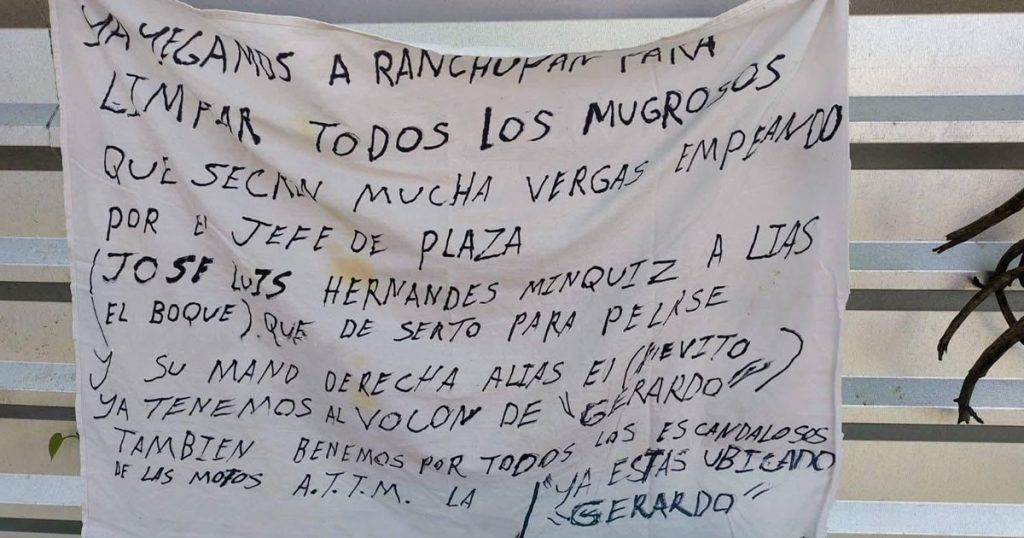 YA YEGAMOS A RANCHUPAN PARA
LIMPAR TODOS LOS MUGROSOS
QUE SECRN MUCHA VERGAS EMPEANDO
POR El JEFE DE PLAZA
(JOSE LUIS HERNANDES MINQUIZ A LIAS
(EL BOQUE). QUE DE SERTO PARA PELRSE
Y SU MANO DERECHA ALIAS El (
YA TENEMOS AL VOCON DE "GERARDO")
TAMBIEN BENEMOS POR TODOS LOS ESCANDALOSOS
DE LAS MOTOS A.T.T.M. LA
"YA ESTAS UBICADO
"GERARDO"